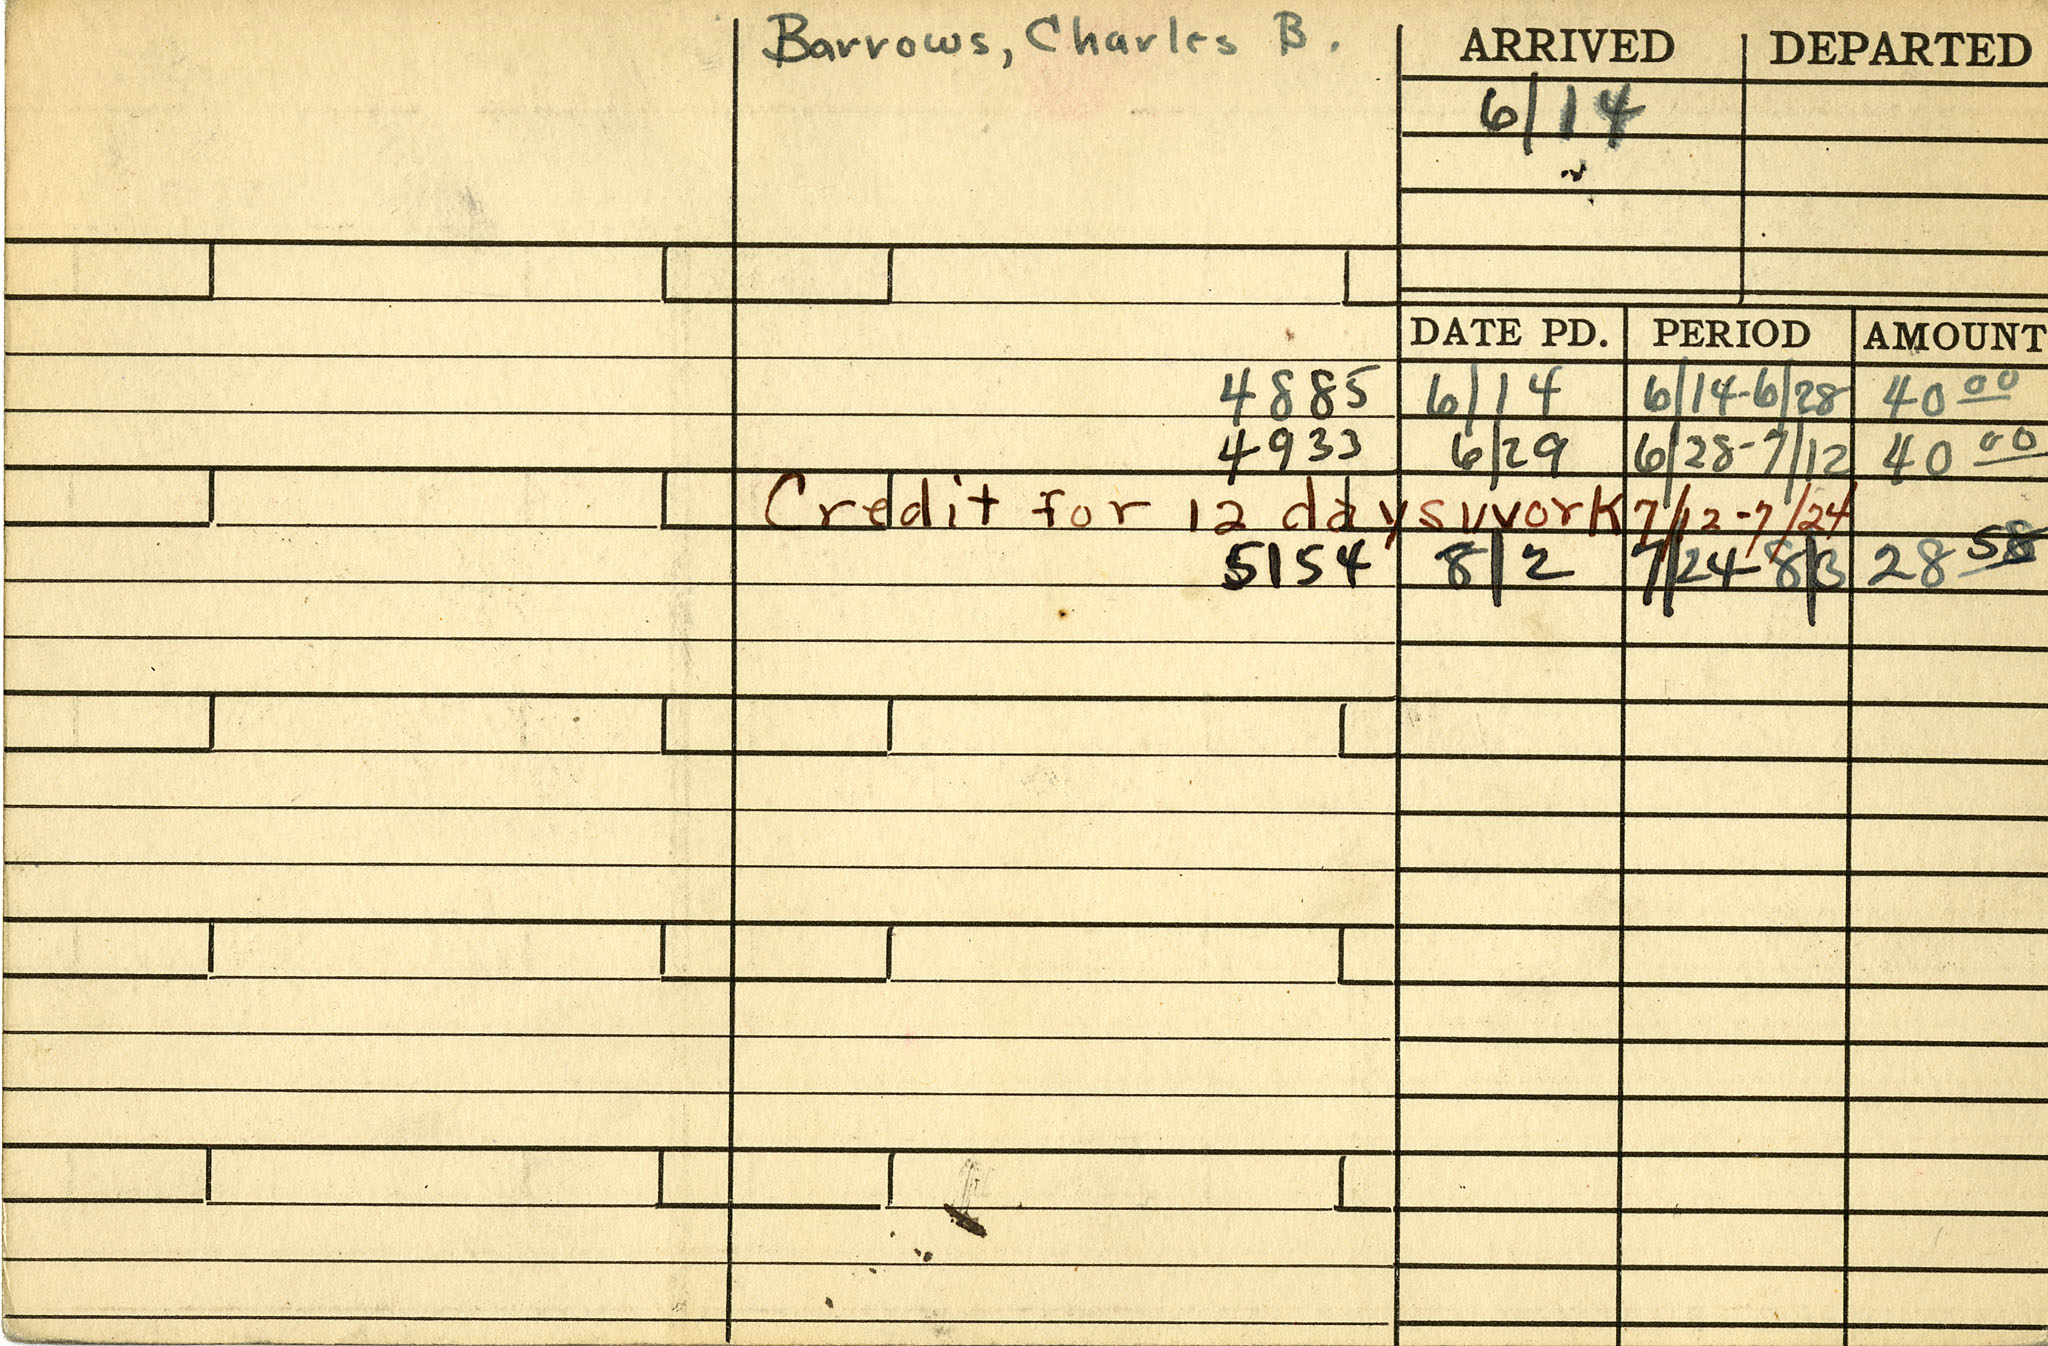 Barrows, Charles B. ARRIVED DEPARTED
6/14
DATE PD. PERIOD AMOUNT
4885 6/14 6/14-6/28 40 00
4933 6/29 6/28-7/12 40 00
Credit for 12 days work 7/12-7/24
5154 8/2 7/24-8/3 28 58